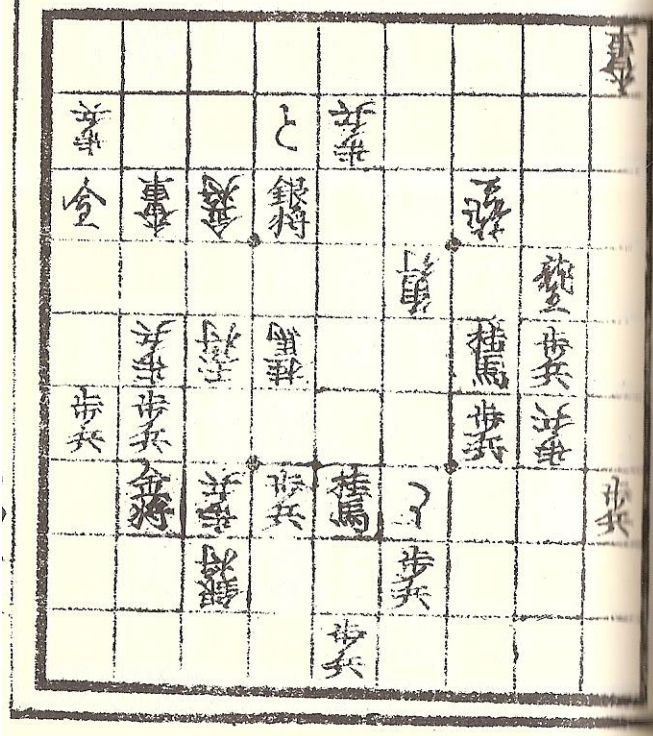 香車
歩兵 と 歩兵
全 香車 金将 銀将 龍王
角行 龍王
歩兵 王将 桂馬 桂馬 歩兵
歩兵 歩兵 歩兵 歩兵
金将 歩兵 歩兵 桂馬 と 歩兵
銀将 歩兵
歩兵